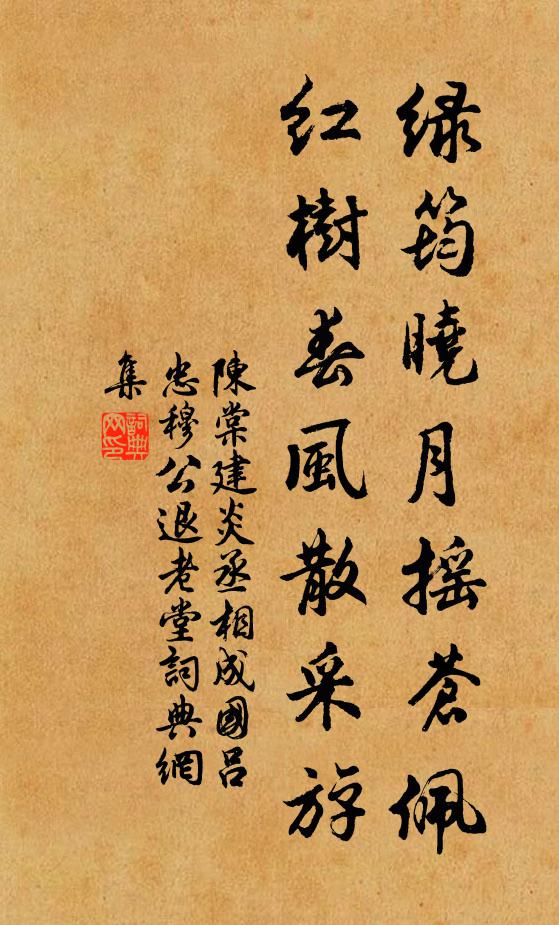 绿筠曉月摇蒼佩
紅樹春風散采斿
陳棠建炎丞相成國呂
忠穆公退老堂詞典網
集
詞典网印